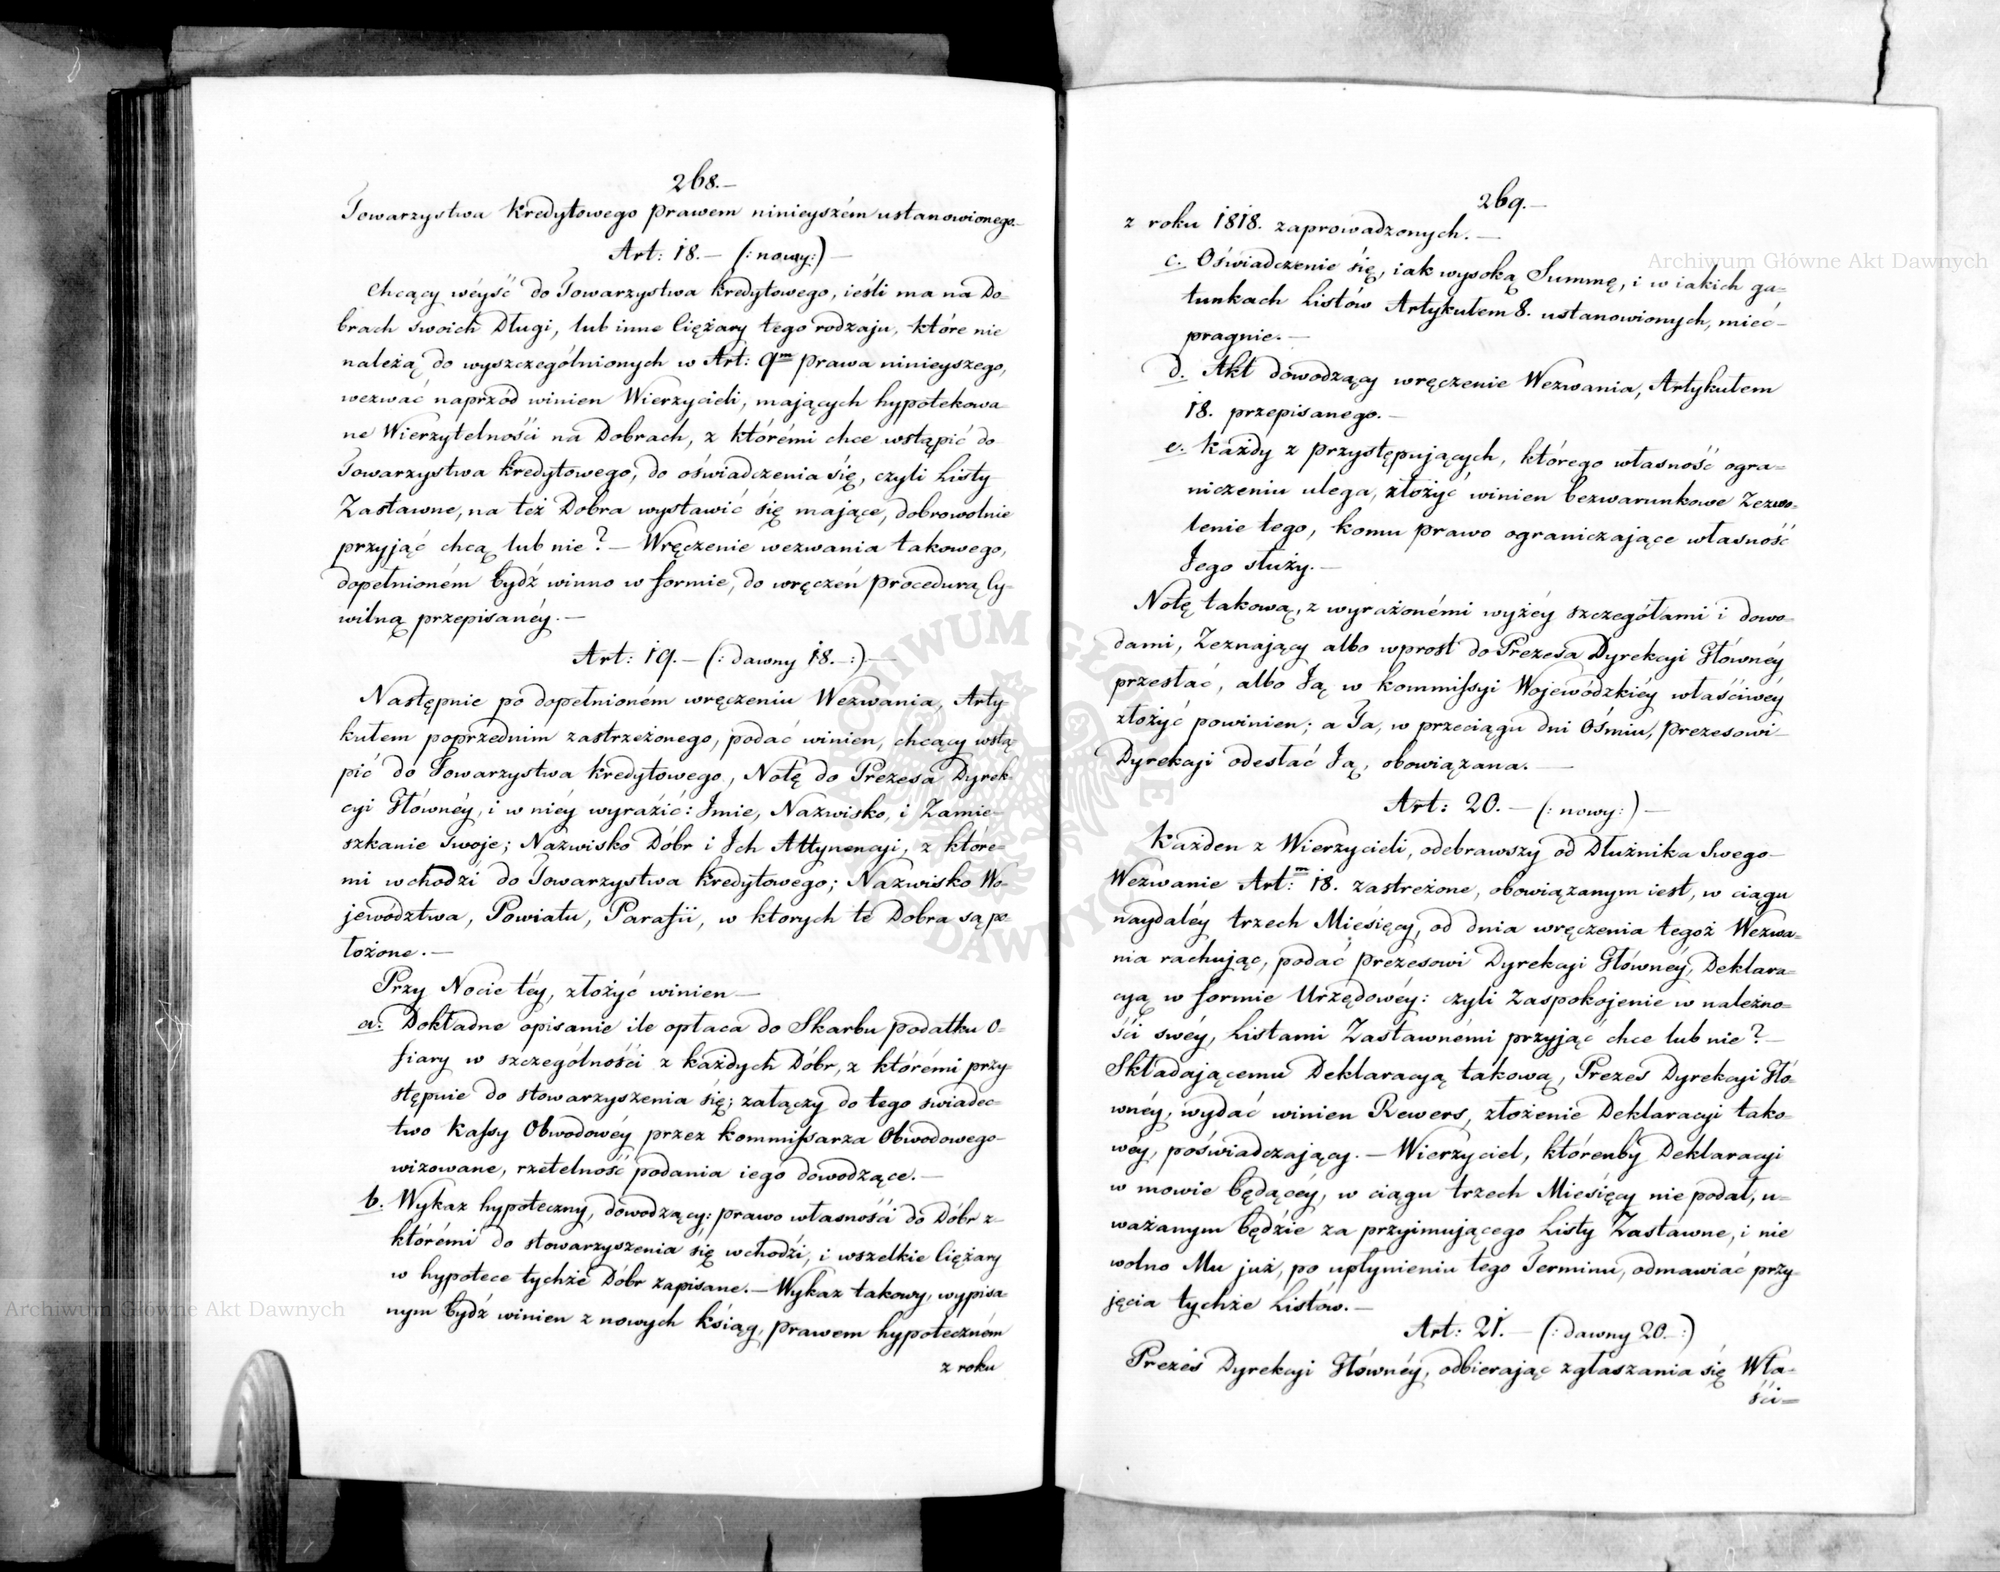 268.—
Towarzystwa Kredytowego prawem ninieyszém ustanowionego.—
Art: 18.— (: nowy:)—
Chcący wéyść do Towarzystwa Kredytowego, ieśli ma na Do=
brach swoich Długi, lub inne Ciężary tego rodzaju, które nie
należą do wyszczególnionych w Art: 9m prawa ninieyszego,
wezwać naprzód winien Wierzycieli, mających hypotekowa
ne Wierzytelności na Dobrach, z którémi chce wstąpić do
Towarzystwa Kredytowego, do oświadczenia się, czyli Listy
Zastawne, na też Dobra wystawić się mające, dobrowolnie
przyjąć chcą lub nie? — Wręczenie wezwania takowego,
dopełnioném bydź winno w formie, do wręczeń procedurą Cy=
wilną przepisanéy.—
Art: 19.— (: dawny 18.—:)—
Następnie po dopełnioném wręczeniu Wezwania, Arty
kułem poprzednim zastrzeżonego, podać winien, chcący wstą
pić do Towarzystwa Kredytowego, Notę do Prezesa Dyrek=
cyi Głównéy, i w niéy wyrazić: Imie, Nazwisko, i Zamie=
szkanie swoje; Nazwisko Dóbr i Ich Attynencyi, z które=
mi wchodzi do Towarzystwa Kredytowego; Nazwisko Wo=
jewództwa, Powiatu, Parafii, w ktorych te Dobra są po
łożone.—
Przy Nocie téy, złożyć winien—
a. Dokładne opisanie ile opłaca do Skarbu podatku o=
fiary w szczególności z każdych Dóbr, z którémi przy=
stępuie do stowarzyszenia się; załączy do tego świadec=
two Kassy Obwodowéy przez Kommissarza Obwodowego—
wizowane, rzetelność podania iego dowodzące.—
b. Wykaz hypoteczny, dowodzący: prawo własności do Dóbr z—
którémi do stowarzyszenia się wchodzi, i wszelkie Ciężary
w hypotece tychże Dóbr zapisane.— Wykaz takowy, wypisa=
nym bydź winien z nowych ksiąg, prawem hypoteczném
z roku
269.—
z roku 1818. zaprowadzonych.—
c. Oświadczenie się, iak wysoką Summę, i w iakich ga=
tunkach Listów Artykułem 8. ustanowionych, mieć—
pragnie.—
d. Akt dowodzący wręczenie Wezwania, Artykułem
18. przepisanego.—
e. Każdy z przystępujących, którego własność ogra=
niczeniu ulega, złożyć winien bezwarunkowe Zezwo=
lenie tego, komu prawo ograniczające własność
Jego służy.—
Notę takową, z wyrażonémi wyżéy szczegółami i dowo=
dami, Zeznający albo wprost do Prezesa Dyrekcyi Głównéy
przesłać, albo Ją w Kommissyi Wojewódzkiéy właściwéy
złożyć powinien; a Ta, w przeciągu dni Ośmiu, prezesowi—
Dyrekcyi odesłać Ją, obowiązana.—
Art: 20.— (: nowy:)—
Każden z Wierzycieli, odebrawszy od Dłużnika Swego—
Wezwanie Art:m 18. zastreżone, obowiązanym iest, w ciągu
naydaléy trzech Miesięcy, od dnia wręczenia tegoż Wezwa=
nia rachując, podać prezesowi Dyrekcyi Głównéy, Deklara=
cyą w formie Urzędowéy: czyli Zaspokojenie w należno=
ści swéy, Listami Zastawnémi przyjąć chce lub nie?—
Składającemu Deklaracyą takową, Prezes Dyrekcyi Głó=
wnéy, wydać winien Rewers, złożenie Deklaracyi tako=
wéy, poświadczający.— Wierzyciel, którenby Deklaracyi
w mowie będącéy, w ciągu trzech Miesięcy nie podał, u=
ważanym będzie za przyimującego Listy Zastawne, i nie
wolno Mu już, po upłynieniu tego Terminu, odmawiać przy=
jęcia tychże Listów.—
Art: 21.— (: dawny 20.—:)
Prezes Dyrekcyi Głównéy, odbierając zgłaszania się Wła=
ści=
Archiwum Główne Akt Dawnych
Archiwum Główne Akt Dawnych
ARCHIWUM GŁÓWNE AKT DAWNYCH